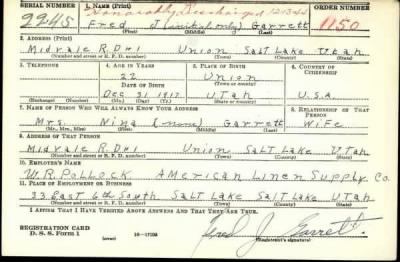 SERIAL NUMBER 1. NAME (Print) Honorably Discharged ORDER NUMBER
2245 Fred J (initial only) Garrett 1150
(First) (Middle) (Last)
2. ADDRESS (Print)
Midvale R.D#1 Union Salt Lake Utah
(Number and street or R. F. D. number) (Town) (County) (State)
3. TELEPHONE 4. AGE IN YEARS 5. PLACE OF BIRTH 6. COUNTRY OF CITIZENSHIP
22 Union
DATE OF BIRTH (Town or county)
Dec 31 1917 Utah U.S.A
(Exchange) (Number) (Mo.) (Day) (Yr.) (State or country)
7. NAME OF PERSON WHO WILL ALWAYS KNOW YOUR ADDRESS 8. RELATIONSHIP OF THAT PERSON
Mrs. Nina (none) Garrett Wife
(Mr., Mrs., Miss) (First) (Middle) (Last)
9. ADDRESS OF THAT PERSON
Midvale R.D#1 Union Salt Lake Utah
(Number and street or R. F. D. number) (Town) (County) (State)
10. EMPLOYER'S NAME
W.R. Pollock American Linen Supply Co.
11. PLACE OF EMPLOYMENT OR BUSINESS
33 East 6th South Salt Lake Salt Lake Utah
(Number and street or R. F. D. number) (Town) (County) (State)
I AFFIRM THAT I HAVE VERIFIED ABOVE ANSWERS AND THAT THEY ARE TRUE.
REGISTRATION CARD
D. S. S. Form 1 (over) Fred J Garrett
(Registrant's signature)